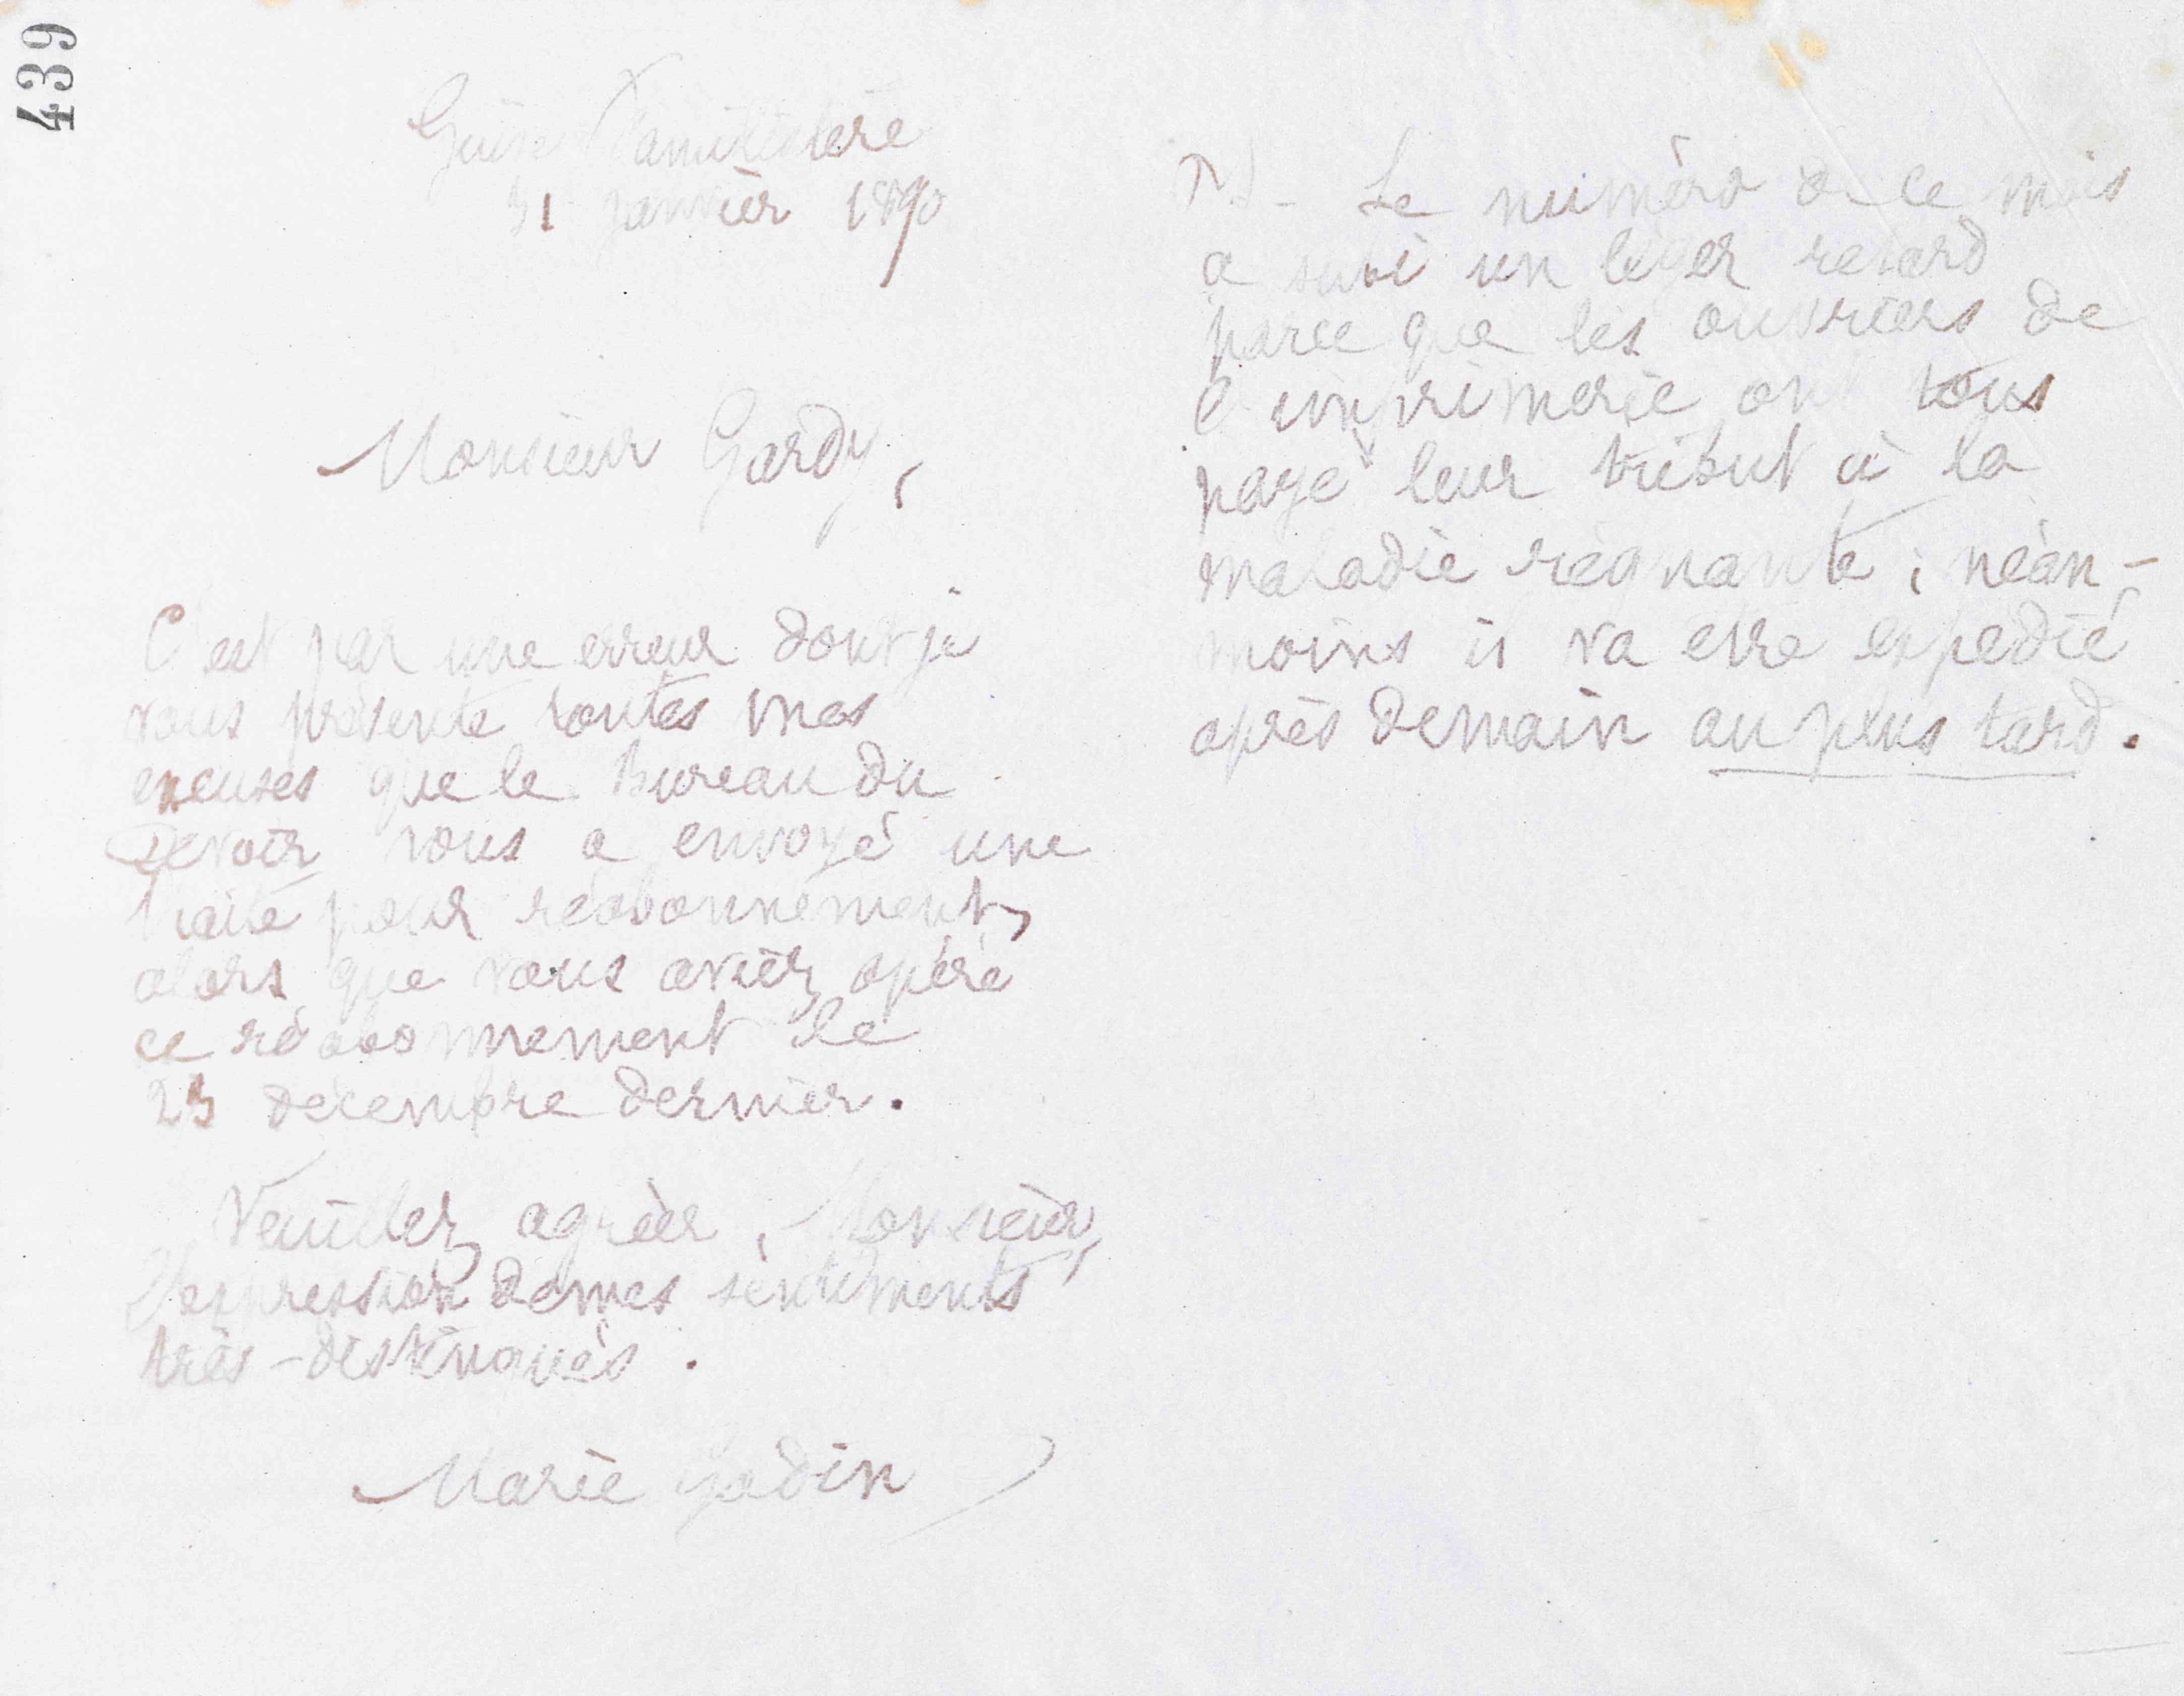 439
Guise Familistère
31 janvier 1890
Monsieur Gardy,
C'est par une erreur dont je
vous présente toutes mes
excuses que le Bureau du
Devoir vous a envoyé une
traite pour réabonnement,
alors que vous aviez opéré
ce réabonnement le
23 décembre dernier.
Veuillez agréer, Monsieur,
l'expression de mes sentiments
très-distingués.
Marie Godin
PS - Le numéro de ce mois
a subi un léger retard
parce que les ouvriers de
l'imprimerie ont tous
payé leur tribut à la
maladie régnante ; néan-
moins il va être expédié
après demain au plus tard.